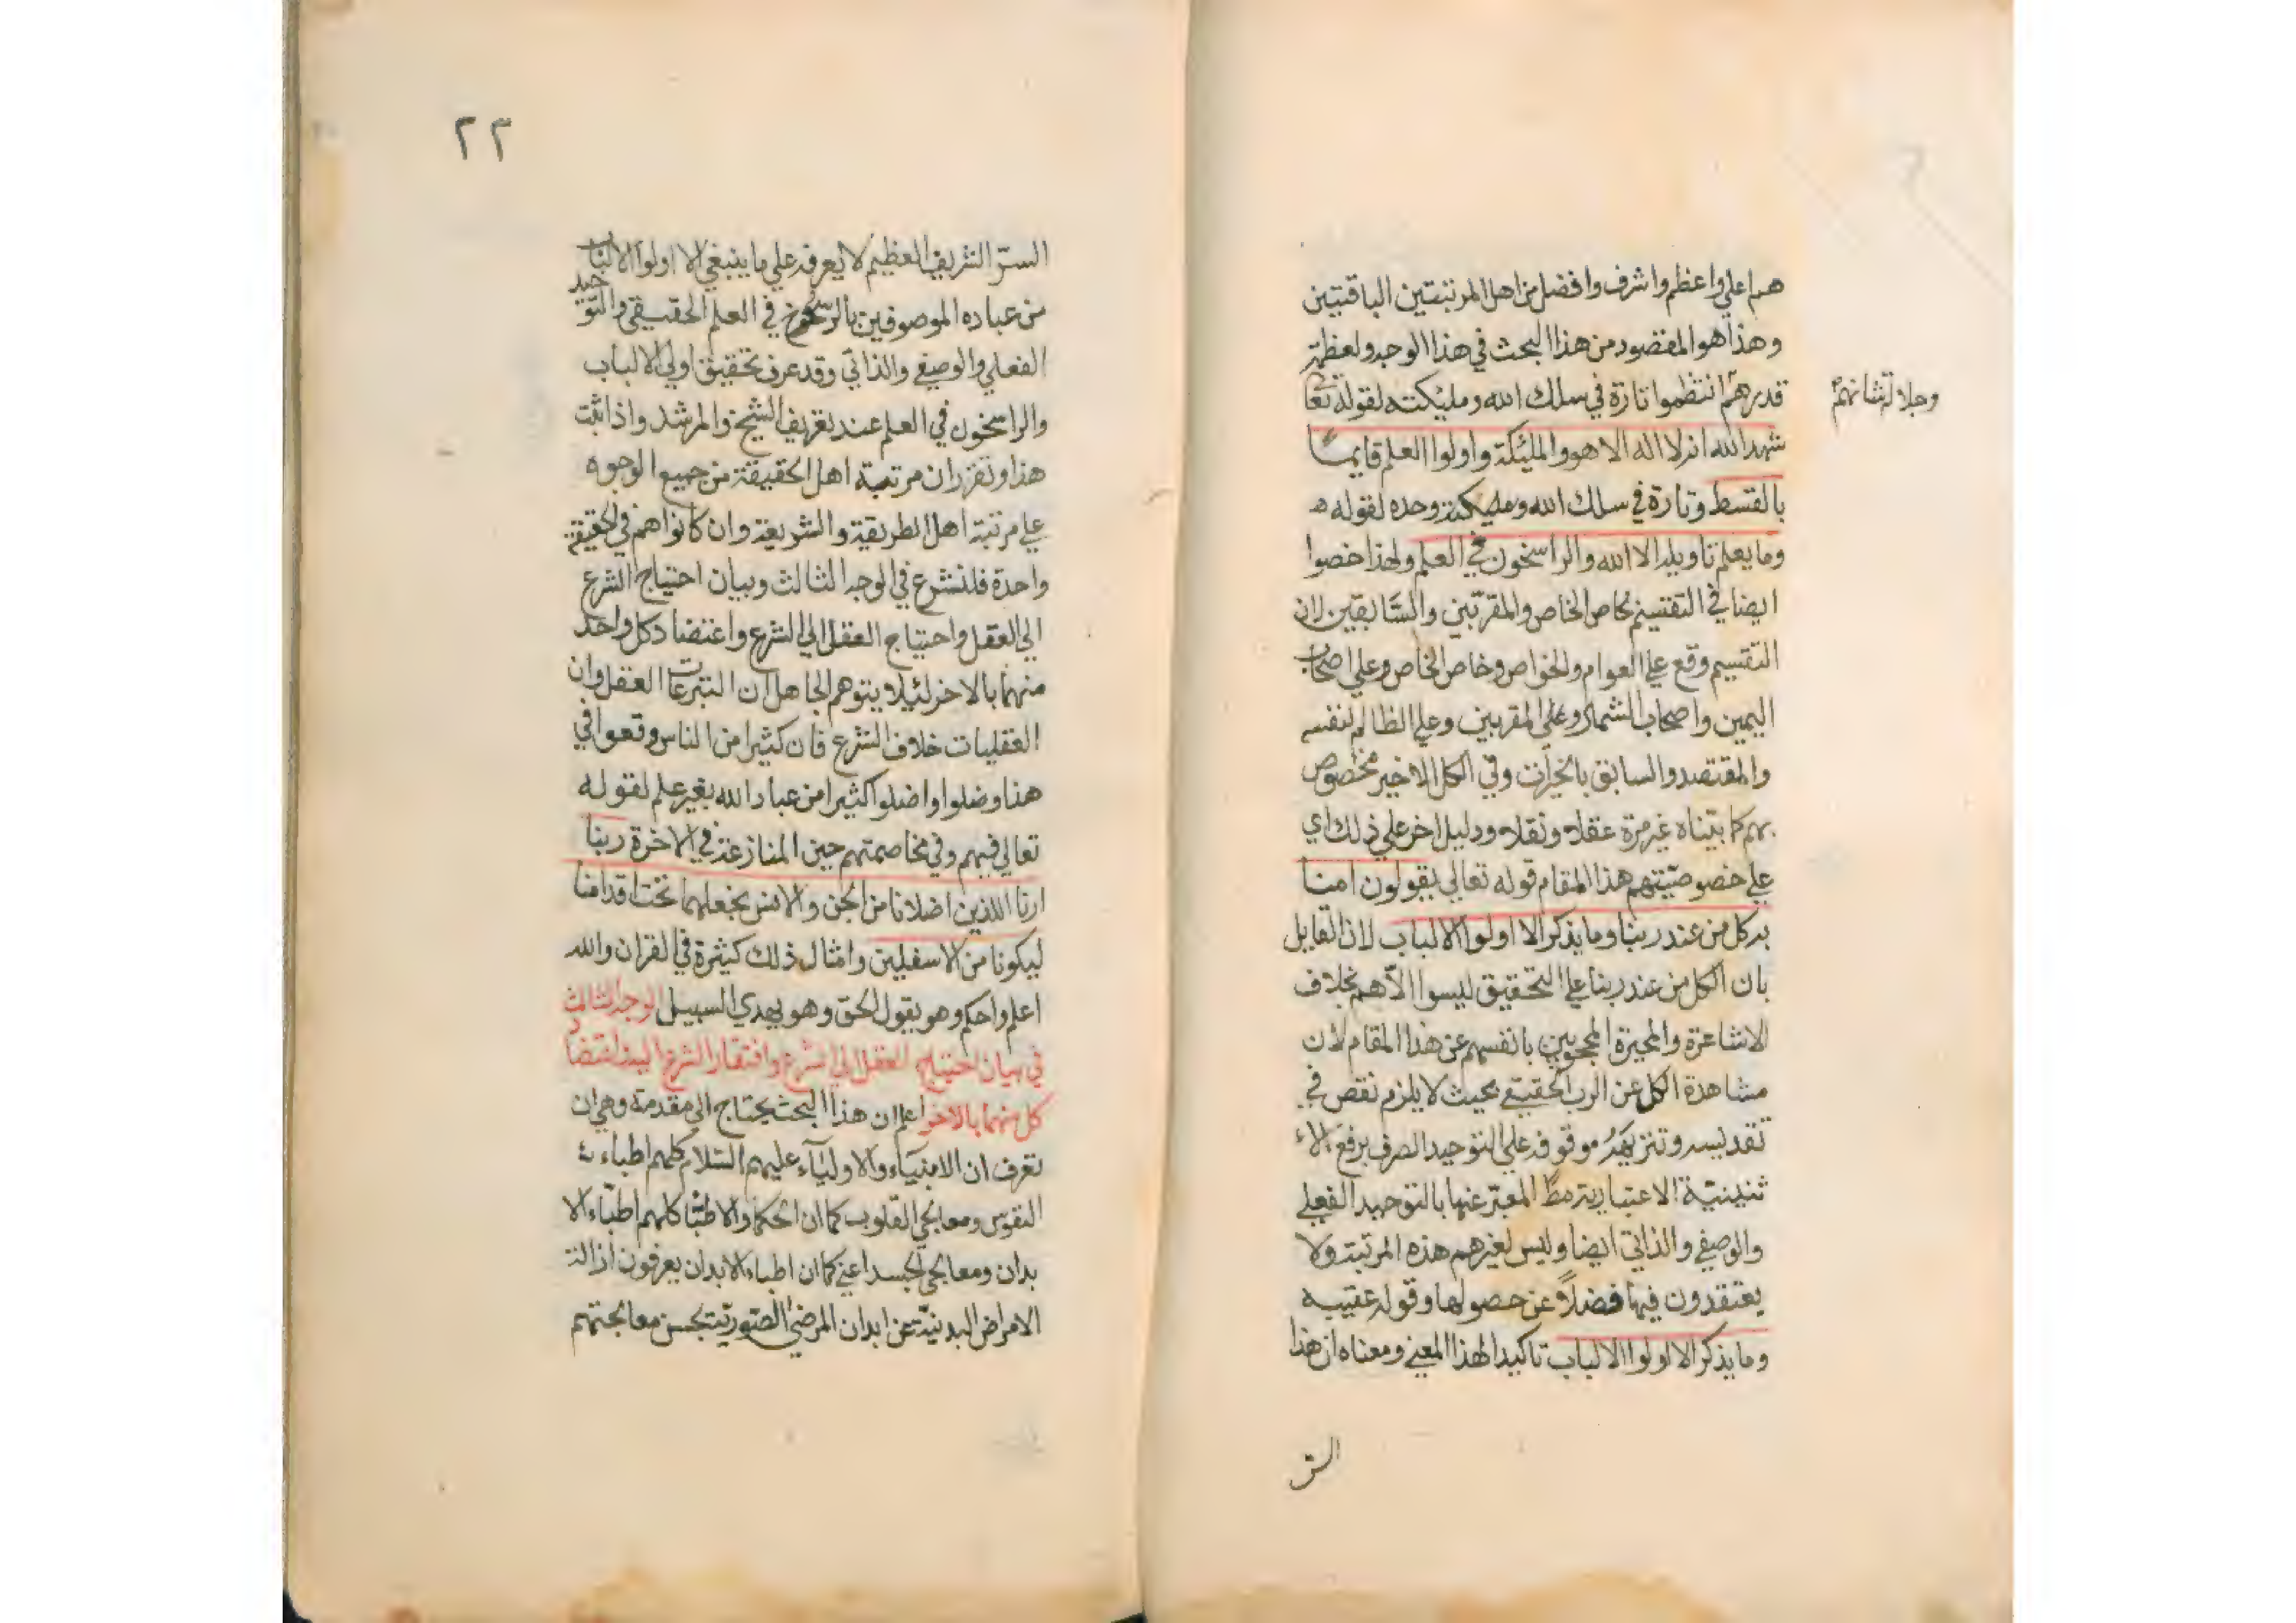 هم اعلي واعظم واشرف وافضل من اهل المرتبتين الباقيتين
وهذا هو المقصود من هذا البحث في هذا الوجه ولعظمة
قدرهم انتظموا تارة في سلك الله ومليكته لقوله تعا
وجلالة شانهم
شهد الله انه لا اله الا هو والمليكة واولوا العلم قايما
بالقسط وتارة في سلك الله ومليكته وحده لقوله
وما يعلم تاويله الا الله والراسخون في العلم ولهذا خصوا
ايضا في التقسيم بخاص الخاص والمقربين والسابقين لان
التقسيم وقع علي العوام والخواص وخاص الخاص وعلي اصحاب
اليمين واصحاب الشمال وعلي المقربين وعلي الظالم لنفسه
والمقتصد والسابق بالخيرات وفي الكل الاخير مخصوص
بهم كما بيناه غير مرة عقلا ونقلا ودليل اخر علي ذلك اي
علي خصوصيتهم هذا المقام قوله تعالي يقولون امنا
به كل من عند ربنا وما يذكر الا اولوا الالباب لان القايل
بان الكل من عند ربنا علي التحقيق ليسوا الا هم بخلاف
الاشاعرة والمجبرة المحجوبين بانفسهم عن هذا المقام لان
مشاهدة الكل عن الرب الحقيقي بحيث لا يلزم نقص في
تقديسه وتنزيهه موقوفة علي التوحيد الصرف برفع الا
ثنينية الاعتبارية مط المعبر عنها بالتوحيد الفعلي
والوصفي والذاتي ايضا وليس لغيرهم هذه المرتبة ولا
يعتقدون فيها فضلا عن حصولها وقوله عقيبه
وما يذكر الا اولوا الالباب تاكيدا لهذا المعني ومعناه ان هذا
السر
٢٢
السر الشريف العظيم لا يعرفه علي ما ينبغي الا اولوا الالباب
من عباده الموصوفين بالرسوخ في العلم الحقيقي والتوحيد
الفعلي والوصفي والذاتي وقد عرف تحقيق اولي الالباب
والراسخون في العلم عند تعريف الشيخ والمرشد واذا ثبت
هذا وتقرر ان مرتبة اهل الحقيقة من جميع الوجوه
علي مرتبة اهل الطريقة والشريعة وان كانوا هم في الحقيقة
واحدة فلنشرع في الوجه الثالث وبيان احتياج الشرع
الي العقل واحتياج العقل الي الشرع واعتضاد كل واحد
منهما بالاخر لئلا يتوهم الجاهل ان الشرعيات العقل وان
العقليات خلاف الشرع فان كثيرا من الناس وقعوا في
هذا وضلوا واضلوا كثيرا من عباد الله بغير علم لقوله
تعالي فيهم وفي مخاصمتهم حين المنازعة في الاخرة ربنا
ارنا اللذين اضلانا من الجن والانس نجعلهما تحت اقدامنا
ليكونا من الاسفلين وامثال ذلك كثيرة في القران والله
اعلم واحكم وهو يقول الحق وهو يهدي السبيل الوجه الثالث
في بيان احتياج العقل الي الشرع وافتقار الشرع اليه اعتضاد
كل منهما بالاخر اعلم ان هذا البحث يحتاج الي مقدمة وهي ان
تعرف ان الانبياء والاولياء عليهم السلام كلهم اطباء
النفوس ومعالجي القلوب كما ان الحكما والاطبا كلهم اطباء الا
بدان ومعالجي الجسد اعني كما ان اطباء الابدان يعرفون ازالة
الامراض البدنية عن ابدان المرضي الصورية بحسن معالجتهم